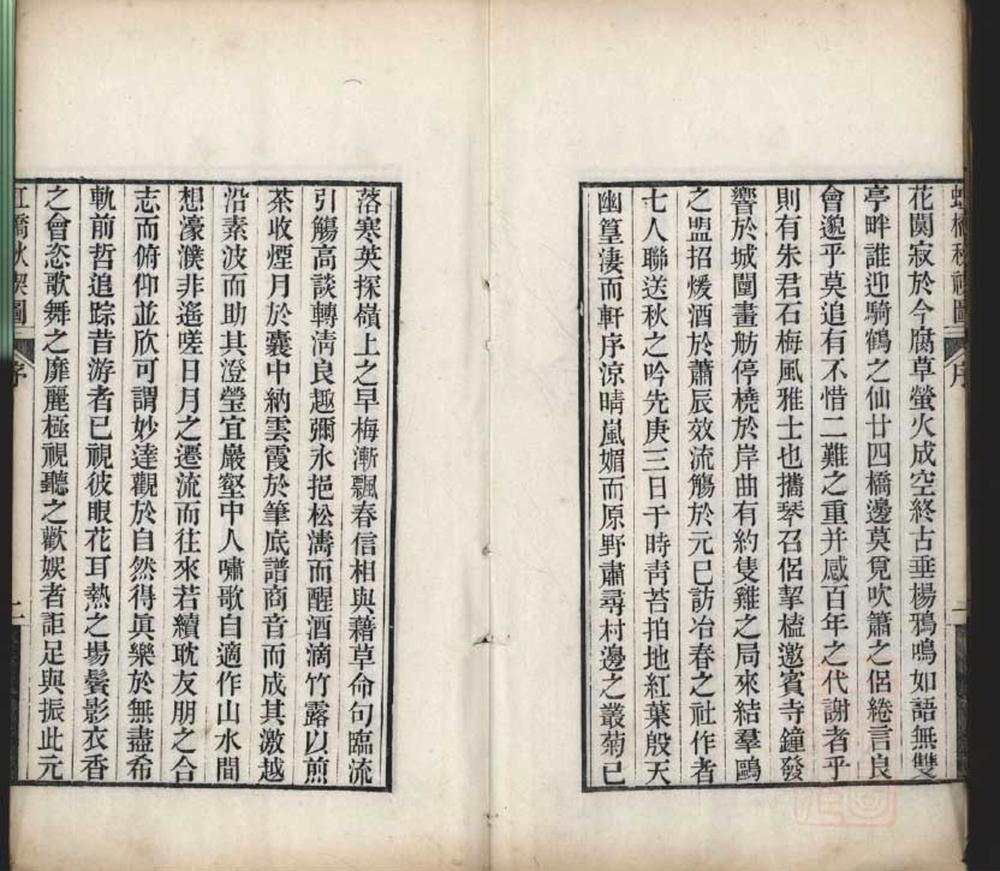 虹橋秋禊圖 序 一
花闃寂於今腐草螢火成空終古垂楊鴉鳴如語無雙
亭畔誰迎騎鶴之仙廿四橋邊莫覓吹簫之侶綣言良
會邈乎莫追有不惜二難之重并感百年之代謝者乎
則有朱君石梅風雅士也攜琴召侶挈榼邀賓寺鐘發
響於城闉畫舫停橈於岸曲有約隻雞之局來結羣鷗
之盟招煖酒於蕭辰效流觴於元巳訪冶春之社作者
七人聯送秋之吟先庚三日于時靑苔拍地紅葉殷天
幽篁淒而軒序涼晴嵐媚而原野肅尋村邊之叢菊已
落寒英探嶺上之早梅漸飄春信相與藉草命句臨流
引觴高談轉淸良趣彌永挹松濤而醒酒滴竹露以煎
茶收煙月於囊中納雲霞於筆底譜商音而成其激越
沿素波而助其澄瑩宜巖壑中人嘯歌自適作山水間
想濠濮非遙嗟日月之遷流而往來若續耽友朋之合
志而俯仰並欣可謂妙達觀於自然得眞樂於無盡希
軌前哲追踪昔游者已視彼眼花耳熱之場鬢影衣香
之會恣歌舞之靡麗極視聽之歡娛者詎足與振此元
虹橋秋禊圖 序 二